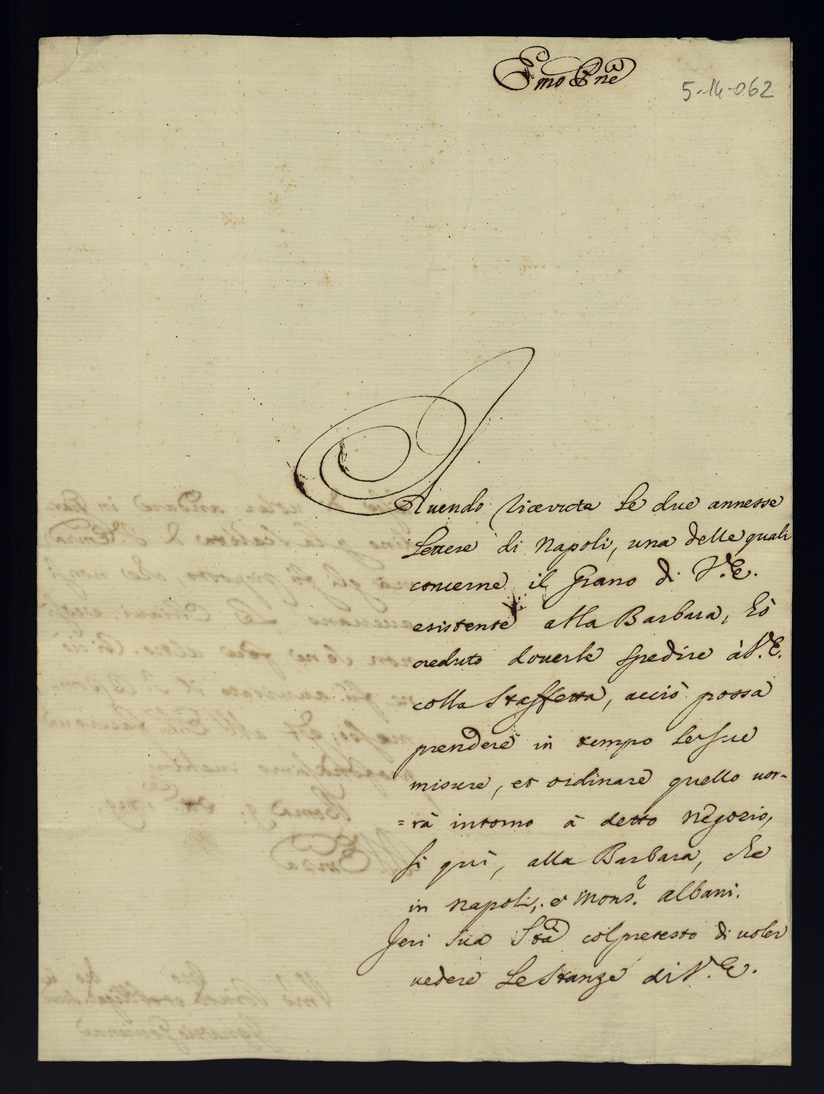 Emo Pne
5-14-062
Auendo riceuute le due annesse
Lettere di Napoli, una delle quali
concerne il Grano di V.E.
esistente alla Barbara, hò
creduto douerle spedire à V.E.
colla Staffetta, acciò possa
prendere in tempo le sue
misure, et ordinare quello uor-
=rà intorno à detto negozio,
sì quì, alla Barbara, che
in Napoli, e Mons.r Albani.
Jeri Sua Stà col pretesto di uoler
uedere le Stanze di V.E.